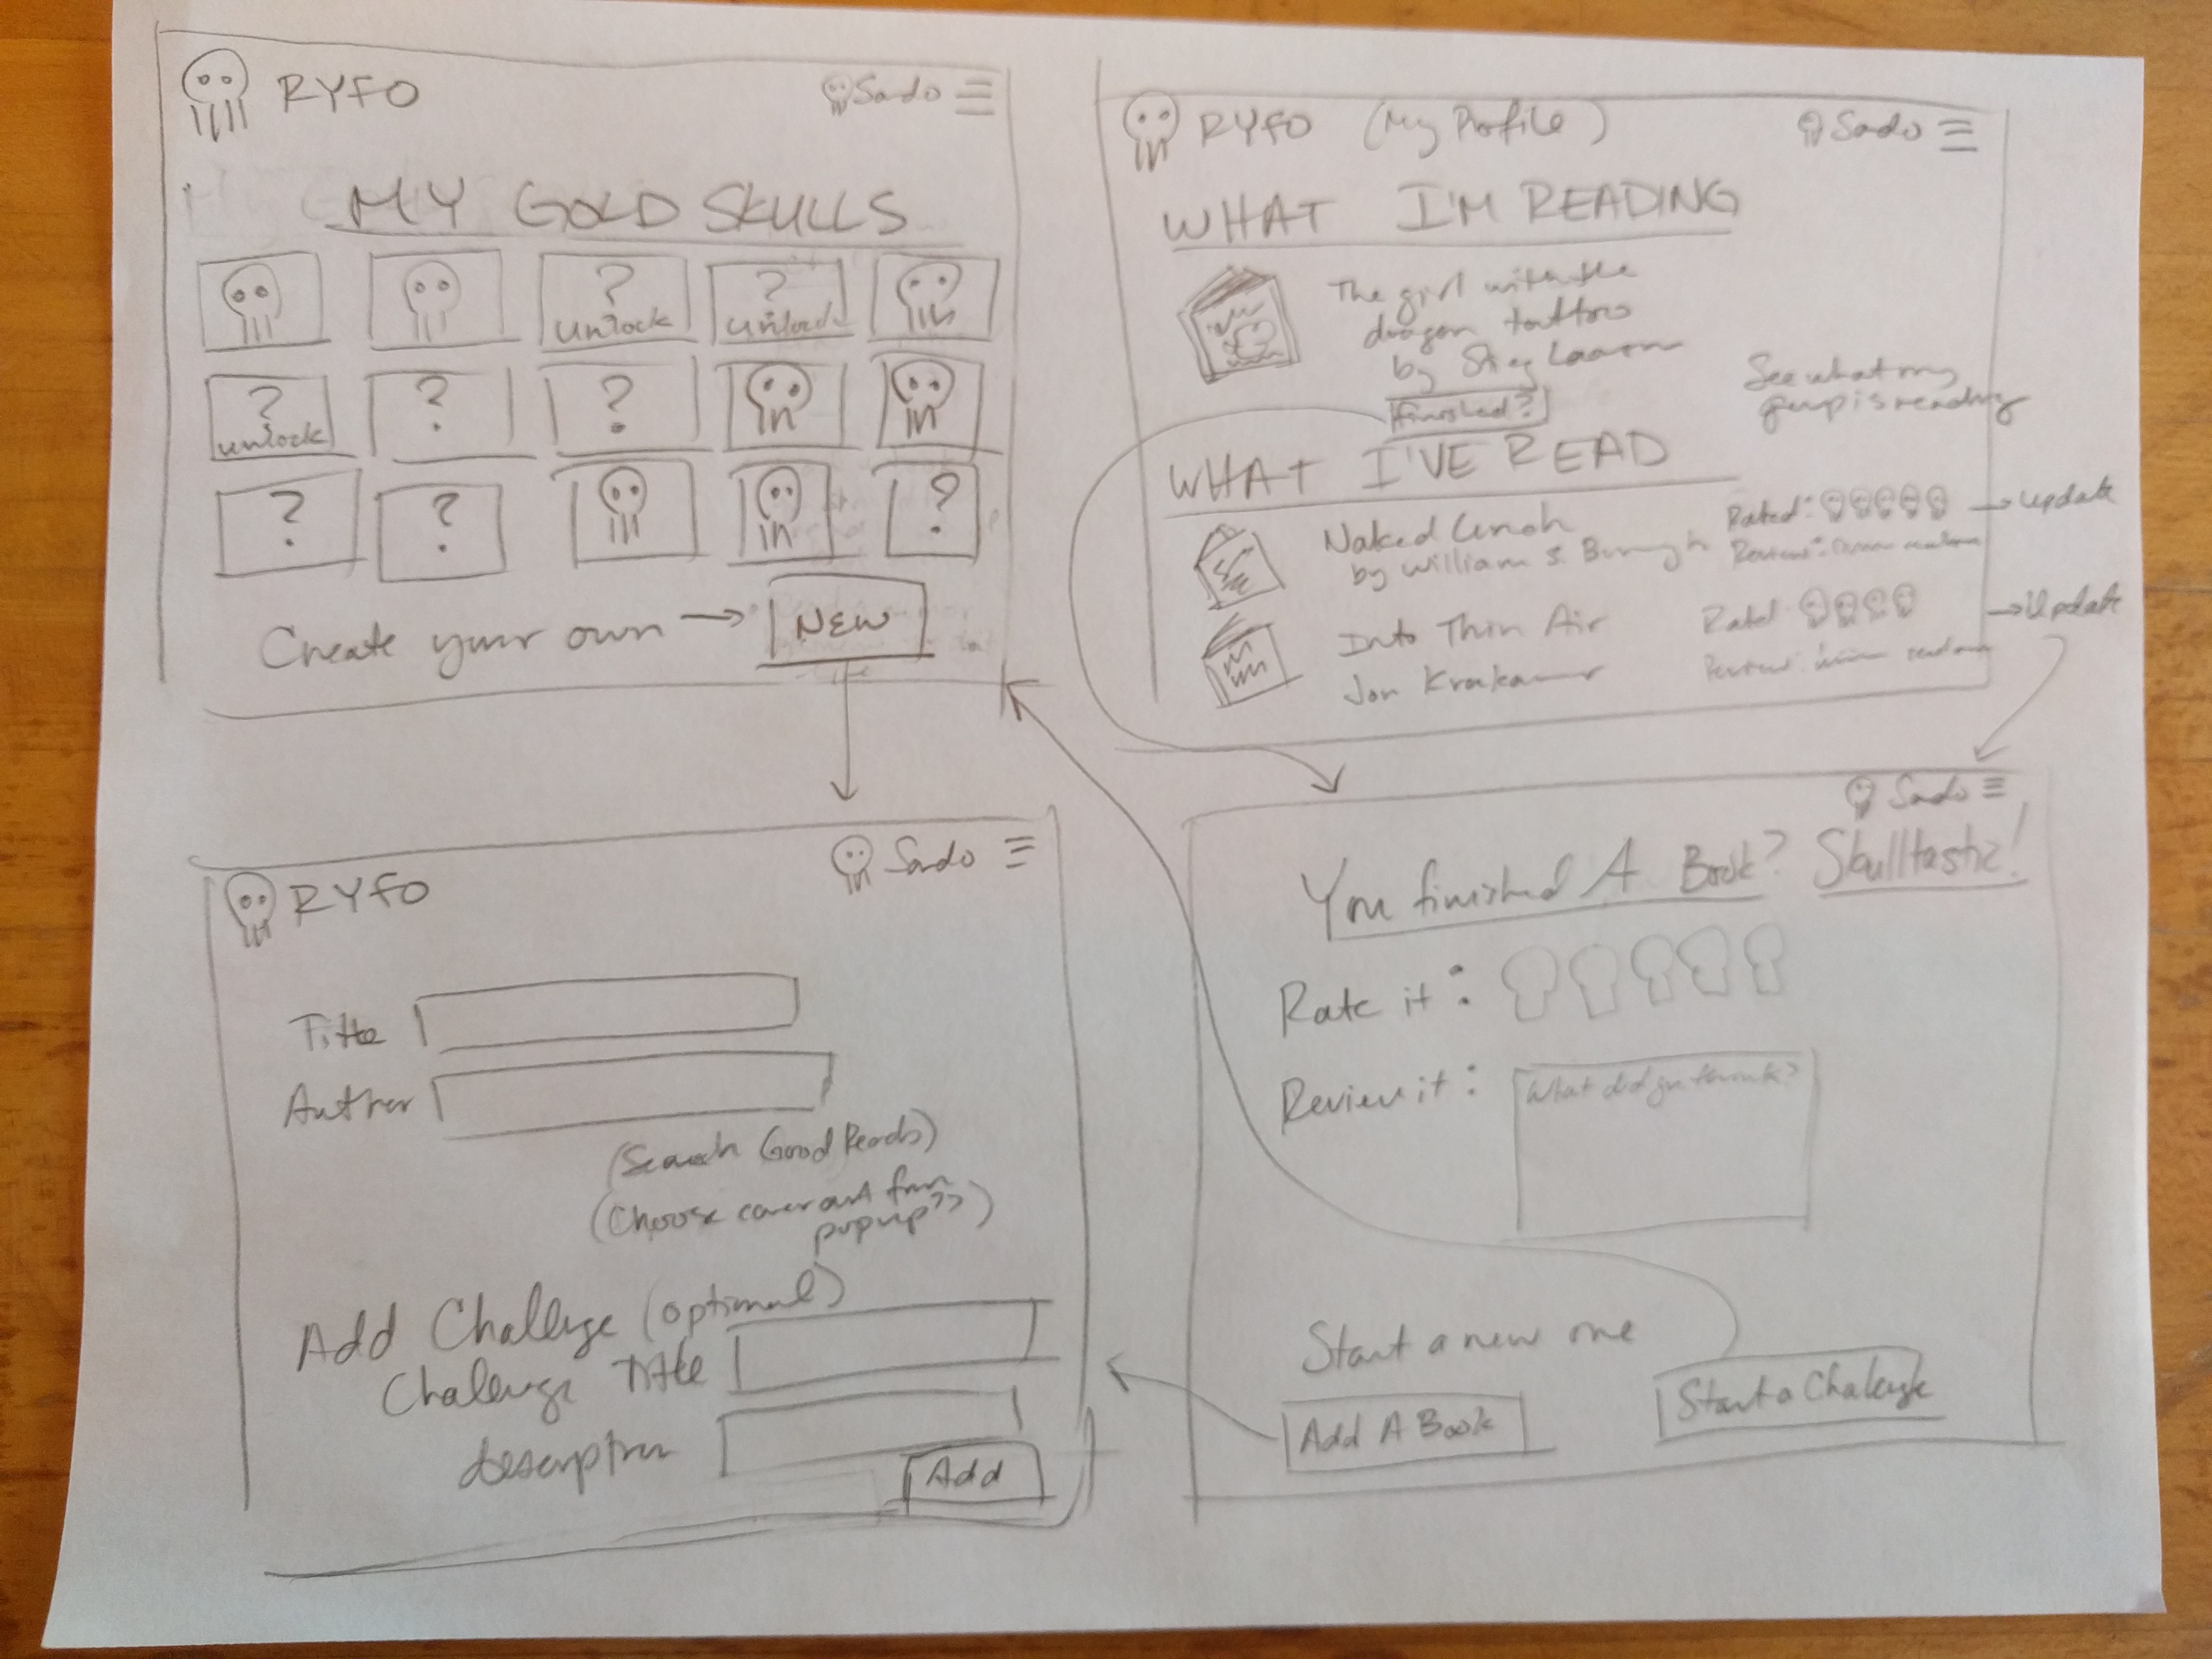 RYFO
Sado
MY GOLD SKULLS
? unlock
? unlock
? unlock
?
?
?
?
?
Create your own → NEW
RYFO (My Profile)
Sado
WHAT I'M READING
The girl with the
dragon tattoo
by Stieg Larsson
finished?
See what my
group is reading
WHAT I'VE READ
Naked Lunch
by William S. Burroughs
Rated: → update
Review:
Into Thin Air
Jon Krakauer
Rated → Update
Review:
RYFO
Sado
Title
Author
(Search Good Reads)
(Choose cover art from
popup??)
Add Challenge (optional)
Challenge Title
description
Add
Sado
You finished A Book? Skulltastic!
Rate it:
Review it:
What did you think?
Start a new one
Add A Book
Start a Challenge